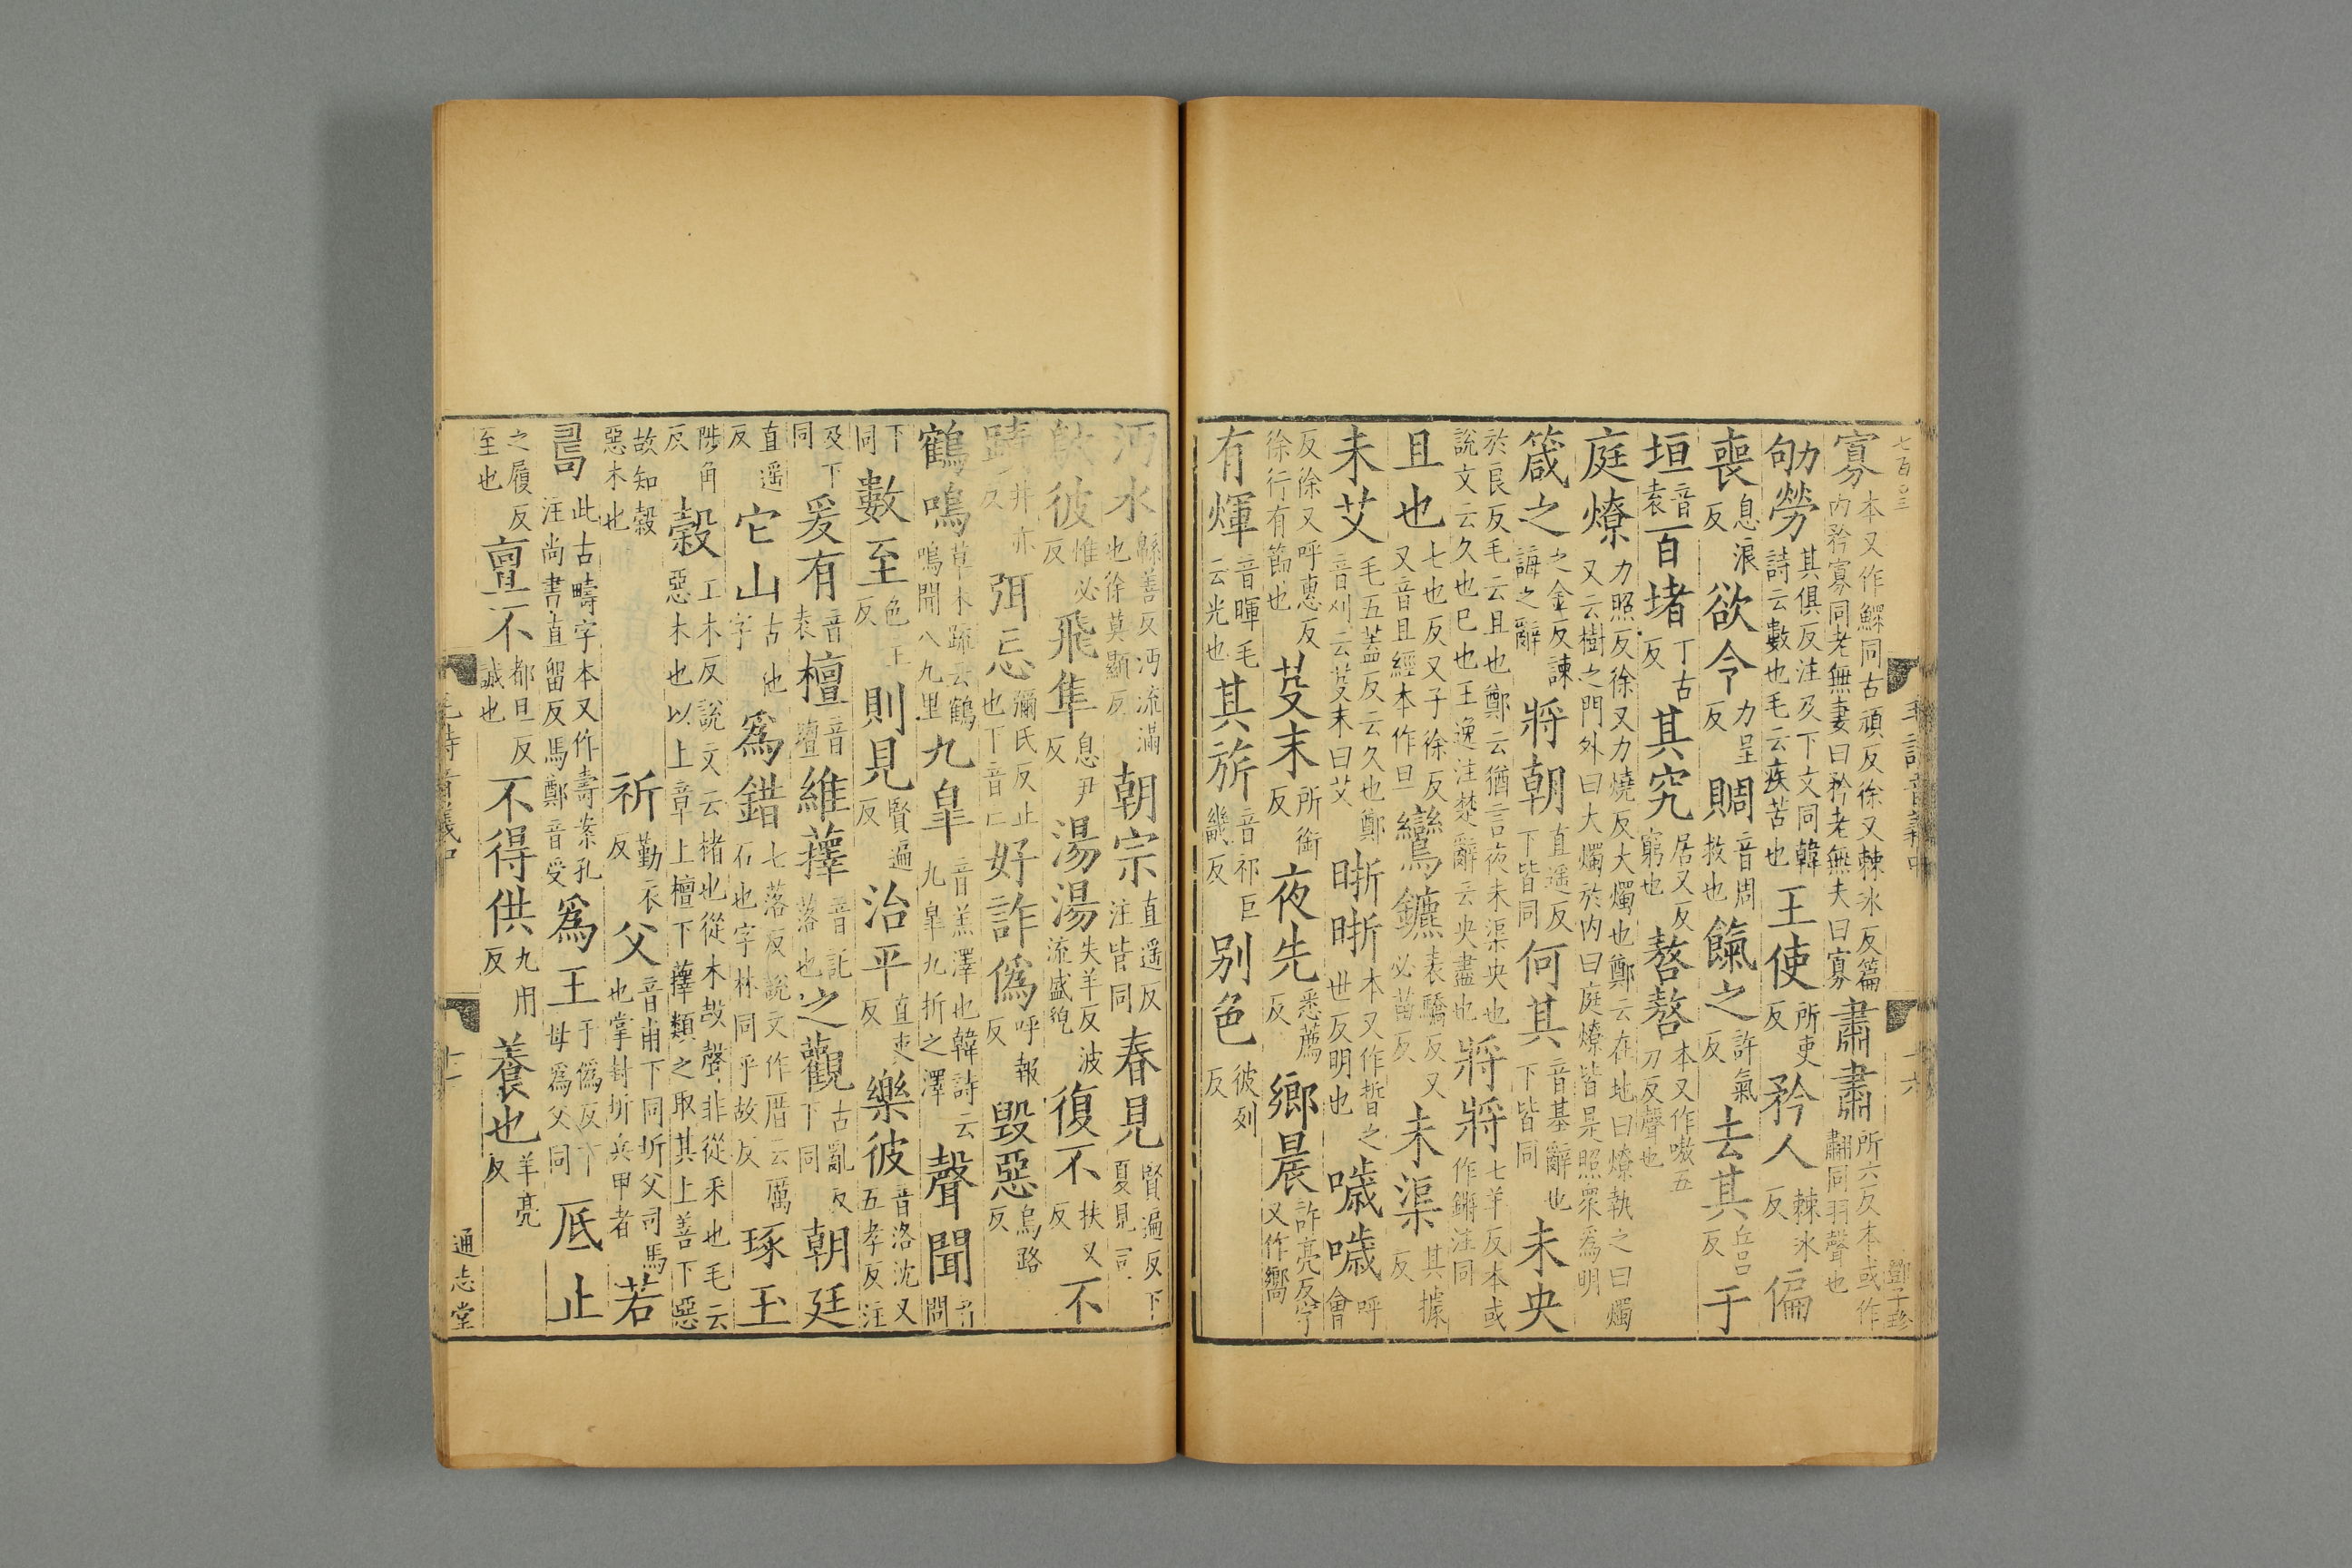 寡本又作鰥同古頑反徐又棘冰反篇内矜寡同老無妻曰矜老無夫曰寡肅肅所六反本或作䎘同羽聲也
劬勞其俱反注及下文同韓詩云數也毛云疾苦也王使所吏反矜人棘冰反偏
喪息浪反欲令力呈反賙音周救也餼之許氣反去其丘吕反于
垣音袁百堵丁古反其究居又反窮也嗸嗸本又作嗷五刀反聲也
庭燎力照反徐又力燒反大燭也鄭云在地曰燎執之曰燭又云樹之門外曰大燭於内曰庭燎皆是照衆爲明
箴之之金反諫誨之辭將朝直遥反下皆同何其音基辭也下皆同未央
於良反毛云且也鄭云猶言夜未渠央也說文云久也已也王逸注楚辭云央盡也將將七羊反本或作鏘注同
且也七也反又子徐反又音且經本作旦鸞鑣表驕反又必苗反未渠其據反
未艾毛五蓋反云久也鄭音刈云芟末曰艾晣晣本又作晢之世反明也噦噦呼會
反徐又呼惠反徐行有節也芟末所銜反夜先悉薦反鄉晨許亮反字又作嚮
有煇音暉毛云光也其旂音祈巨畿反别色彼列反
沔水緜善反沔流滿也徐莫顯反朝宗直遥反注皆同春見賢遍反下夏見同
鴥彼惟必反飛隼息尹反湯湯失羊反波流盛貌復不扶又反不
蹟井亦反弭忘彌氏反止也下音亡好詐僞呼報反毁惡烏路反
鶴鳴草木疏云鶴鳴聞八九里九皐音羔澤也韓詩云九皐九折之澤聲聞音問
下同數至色主反則見賢遍反治平直吏反樂彼音洛沈又五孝反注
及下同爰有音袁檀音壇維蘀音託落也之觀古亂反下同朝廷
直遥反它山古他字爲錯七落反說文作厝云厲石也字林同千故反琢玉
陟角反榖工木反說文云楮也從木㱿聲非從禾也毛云惡木也以上章上檀下蘀類之取其上善下惡
故知榖惡木也祈勤衣反父音甫下同圻父司馬也掌封圻兵甲者若
𠷎此古疇字本又作壽案孔注尚書直留反馬鄭音受爲王于僞反下母爲父同厎止
之履反至也亶不都旦反誠也不得供九用反養也羊亮反
通志堂